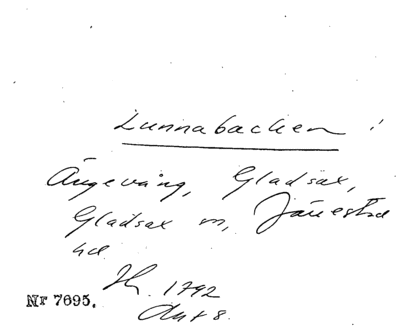 Lunnabacken
Ängavång, Gladsax,
Gladsax sn, Järrestad
hd
1792
Akt 8.
Nr 7695.